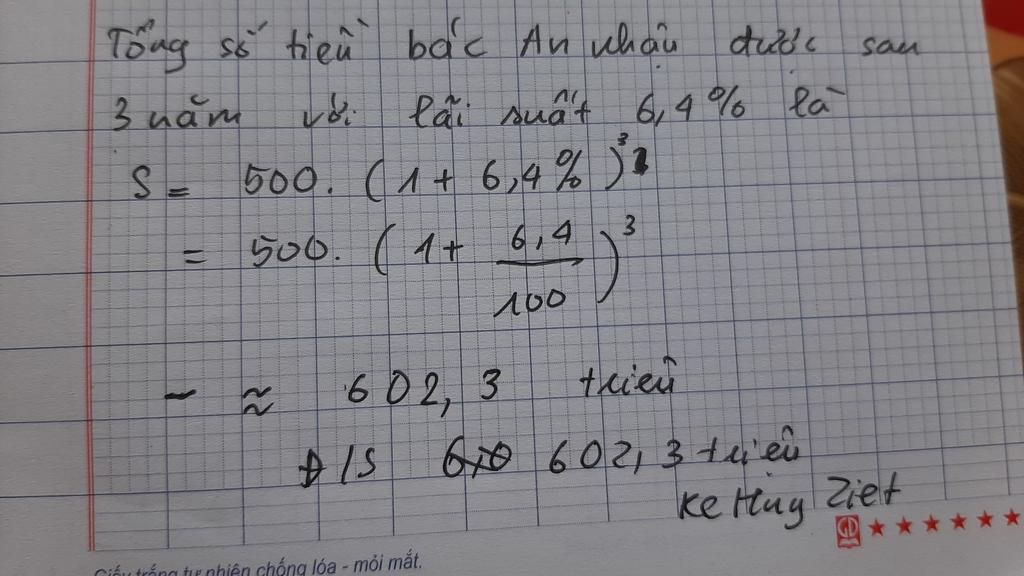 Tổng số tiền bác An nhận được sau
3 năm với lãi suất 6,4% là
S = 500. (1 + 6,4%)³
= 500. (1 + 6,4/100)³
- ≈ 602,3 triệu
Đ/S 602,3 triệu
Ke Hug Ziet
Giấy trắng tự nhiên chống lóa - mỏi mắt.